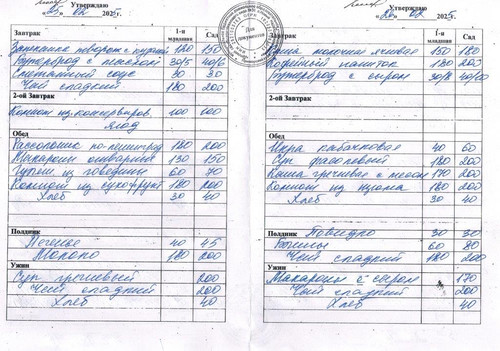 Утверждаю
«25» 02 2025г.
Завтрак
1-я младшая
Сад
Запеканка творожн с крупой 120 150
Бутерброд с маслом 30/5 40/6
Сметанный соус 30 30
Чай сладкий 180 200
2-ой Завтрак
Компот из консервиров. ягод 100 100
Обед
Рассольник по-ленинград 180 200
Макароны отварные 130 150
Гуляш из говядины 60 70
Компот из сухофрукт 180 200
Хлеб 30 40
Полдник
Печенье 40 45
Молоко 180 200
Ужин
Суп гречневый 200
Чай сладкий 200
Хлеб 40
Для документов
Утверждаю
«26» 02 2025
Завтрак
1-я младшая
Сад
Каша молочная ячневая 150 180
Кофейный напиток 180 200
Бутерброд с сыром
2-ой Завтрак
Обед
Икра кабачковая 40 60
Суп фасолевый 180 200
Каша гречневая с мясом 170 200
Компот из изюма 180 200
Хлеб 30 40
Полдник Повидло 30 30
Блины 60 80
Чай сладкий 180 200
Ужин
Макароны с сыром 170
Чай сладкий 200
Хлеб 40